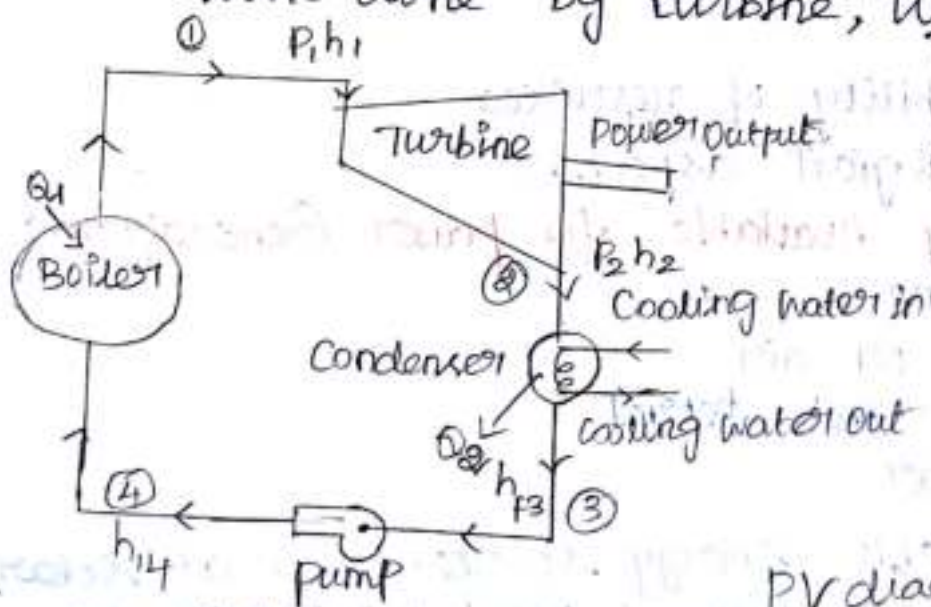 by turbine,
①
P₁h₁
Turbine
Power output
Q₁
Boiler
②
P₂h₂
Cooling water in
Condenser
Cooling water out
Q₂
hf3
③
④
pump
PV dia